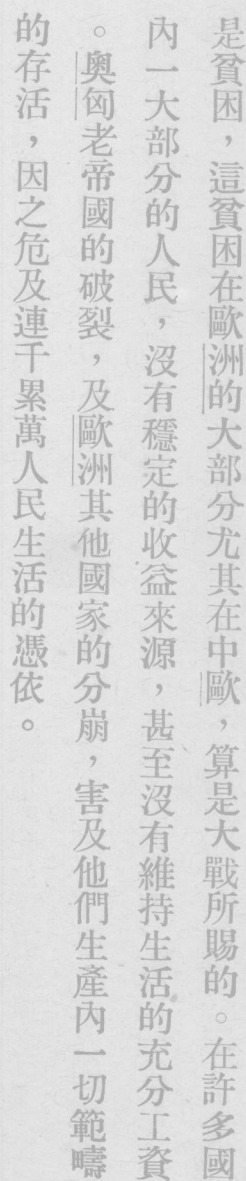 是貧困，這貧困在歐洲的大部分尤其在中歐，算是大戰所賜的。在許多國
內一大部分的人民，沒有穩定的收益來源，甚至沒有維持生活的充分工資
。奧匈老帝國的破裂，及歐洲其他國家的分崩，害及他們生產內一切範疇
的存活，因之危及連千累萬人民生活的憑依。